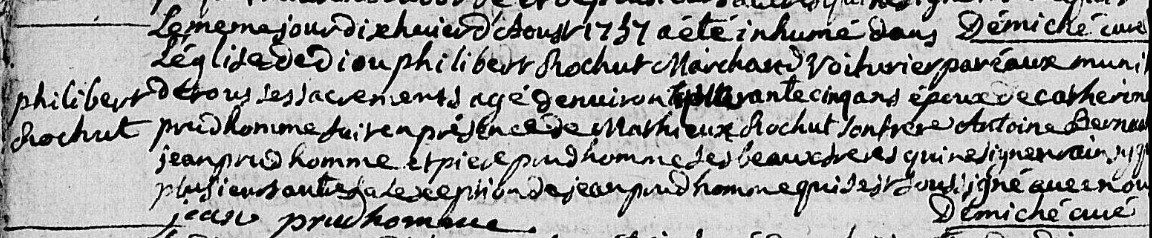 Le meme jour dixhuier d'Aoust 1757 a été inhumé dans Démiché curé
L'église de diou philibert Rochut Marchand Voiturier par eaux muni
philibert de tous ses sacrements agé d'environ quarante cinq ans époux de catherine
Rochut prudhomme fait en présence de Mathieux Rochut son frère Antoine Bernar
jean prudhomme et piere prudhomme ses beaux freres qui ne signent
plusieurs autres a l'exeption de jean prudhomme qui s'est sousigné avec nou
jean prudhomme Démiché curé